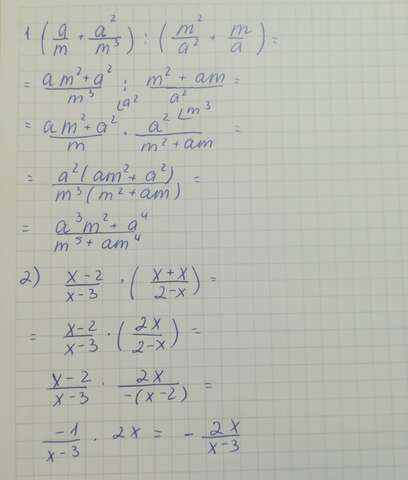 1 (a/m + a²/m³) : (m²/a² + m/a) =
= (am²+a²)/m³ : (m² + am)/a² =
∠a² ∠m³
= (am²+a²)/m · a²/(m²+am) =
= a²(am²+a²)/m³(m²+am) =
= (a³m²+a⁴)/(m⁵+am⁴)
2) (x-2)/(x-3) · ((x+x)/(2-x)) =
= (x-2)/(x-3) · (2x/(2-x)) =
(x-2)/(x-3) · 2x/-(x-2) =
-1/(x-3) · 2x = - 2x/(x-3)